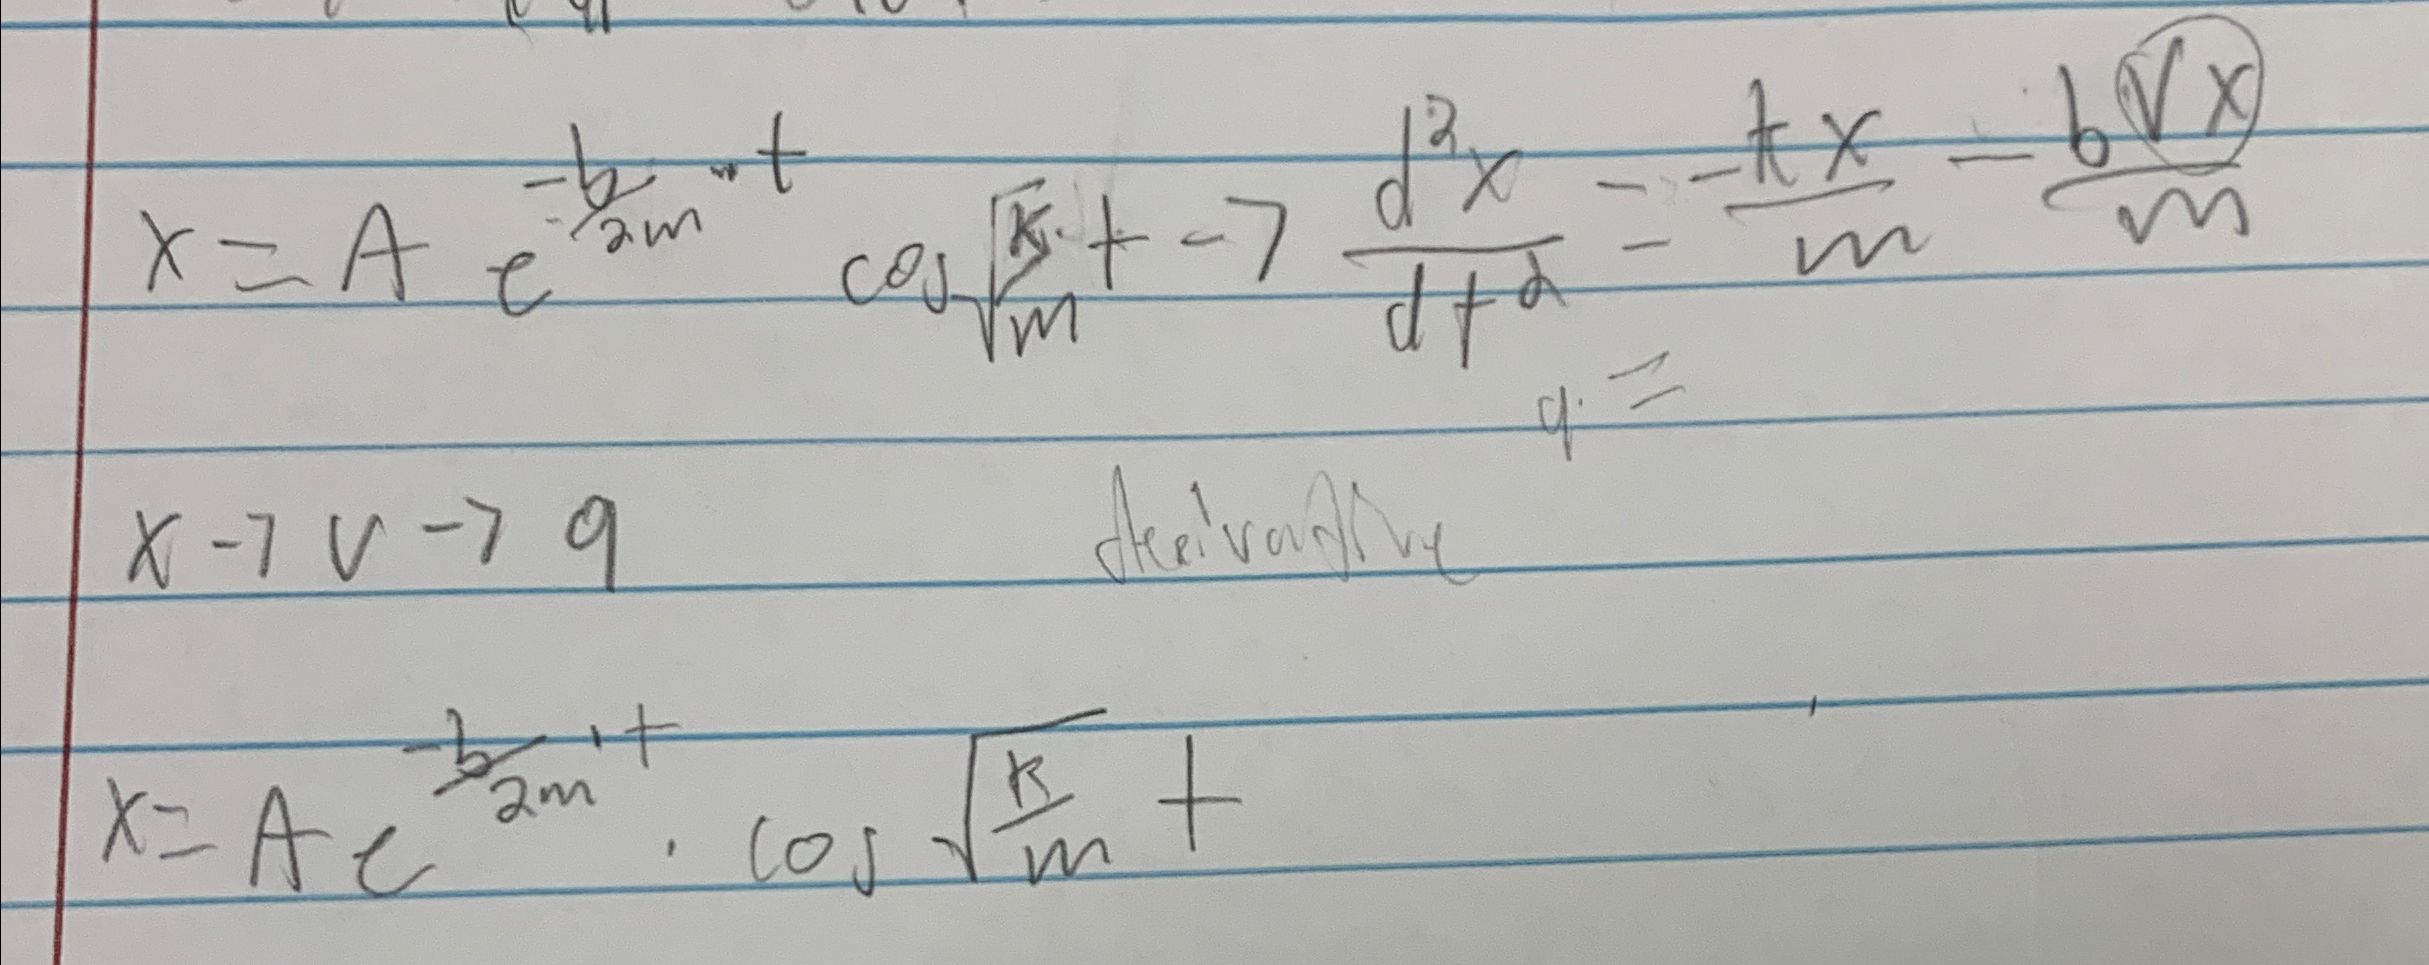 x = A e^{-b/2m · t} cos √(k/m) t -> d²x/dt² = -kx/m - bVx/m
a =
x -> v -> a
derivative
x = A e^{-b/2m · t} · cos √(k/m) t